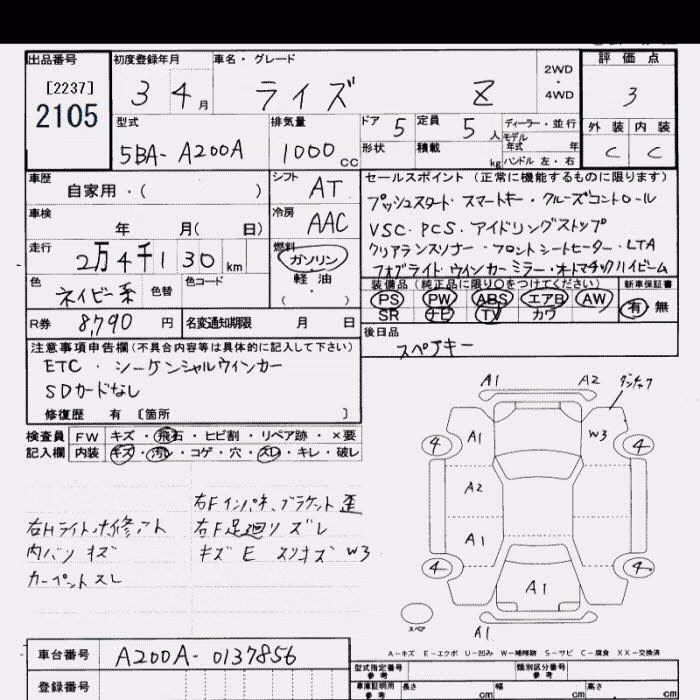 出品番号 初度登録年月 車名・グレード 2WD・4WD 評価点
[2237] 3 4月 ライズ Z 3
2105
型式 排気量 ドア 5 定員 5人 ディーラー・並行 外装 内装
5BA-A200A 1000cc 形状 積載 kg モデル年式 年 C C
ハンドル 左・右
車歴 自家用・( ) シフト AT セールスポイント (正常に機能するものに限ります)
プッシュスタート・スマートキー・クルーズコントロール
車検 年 月( 日) 冷房 AAC VSC・PCS・アイドリングストップ
走行 2万4千130km 燃料 ガソリン・軽油・( ) クリアランスソナー・フロントシートヒーター・LTA
フォグライト・ウインカーミラー・オートマチックハイビーム
色 ネイビー系 色替 色コード 装備品 (純正品に限り○をつけてください) 新車保証書
PS PW ABS エアB AW 有・無
SR ナビ TV カワ
R券 8,790円 名変通知期限 月 日 後日品
スペアキー
注意事項申告欄(不具合内容等は具体的に記入して下さい)
ETC・シーケンシャルウインカー
SDカードなし
修復歴 有 [箇所 ]
検査員記入欄 FW キズ・飛石・ヒビ割・リペア跡・×要
内装 キズ・汚レ・コゲ・穴・スレ・キレ・破レ
右Fインパネ、ブラケット歪
右Hライト 右F足廻リズレ
内バリキズ キズE スリキズ W3
カーペットスレ
A1 A2
4 A1 W3 4
A2
A1
4 A1 4
スペア A1
A-キズ E-エクボ U-凹み W-補修跡 S-サビ C-腐食 XX-交換済
車台番号 A200A-0137856 型式指定番号 参考 類別区分番号 参考
登録番号 車庫証明用 参考 長さ cm 幅 cm 高さ cm